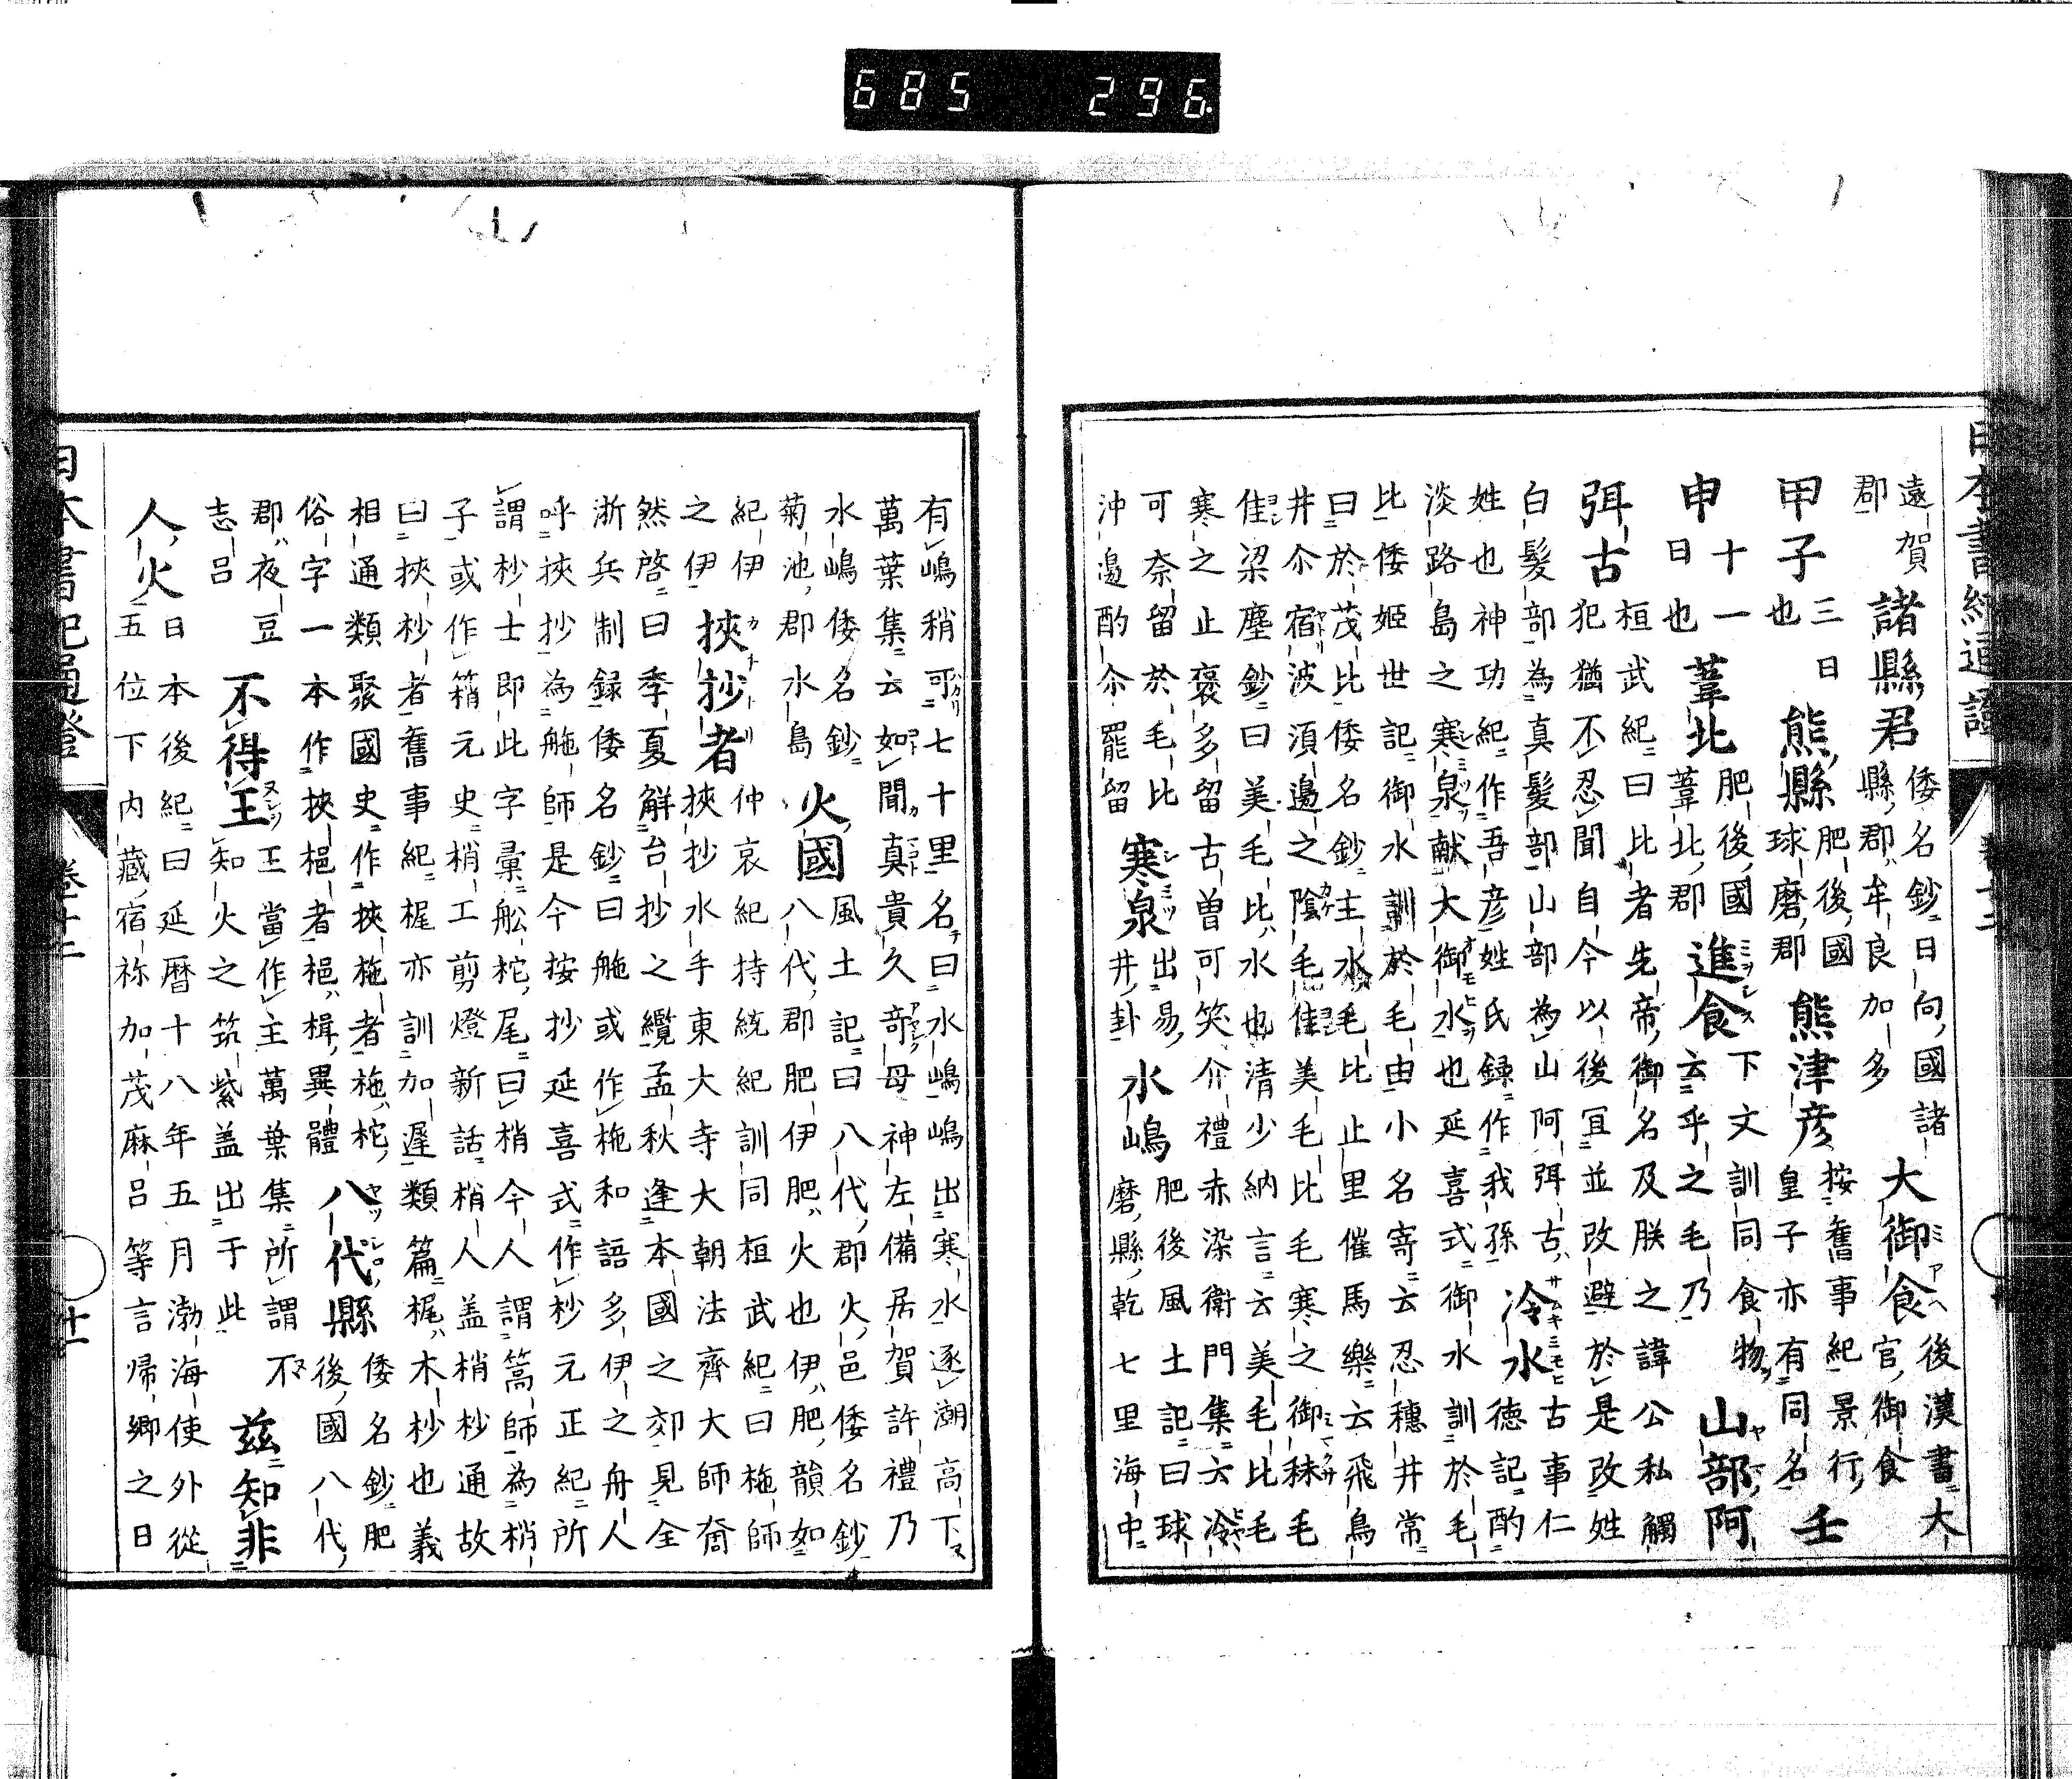 遠賀郡 諸縣君 倭名鈔日向國諸縣郡牟良加多 大御食 後漢書大官御食
甲子 三日也 熊縣 肥後國球磨郡 熊津彦 按舊事紀景行皇子亦有同名 壬
申 十一日也 葦北 肥後國葦北郡 進食 下文訓同食物云乎之毛乃 山部阿
弭古 桓武紀曰比者先帝御名及朕之諱公私觸犯猶不忍聞自今以後宜並改避於是改姓
白髮部為真髮部山部為山阿弭古姓也神功紀作吾彦姓氏録作我孫 冷水 古事仁徳記酌
淡路島之寒泉献大御水也延喜式御水訓於毛
比倭姫世記御水訓於毛由小名寄云忍穗井常
曰於茂比倭名鈔主水毛比止里催馬樂云飛鳥
井尒宿波須邊之陰毛佳美毛比毛寒之御秣毛
佳梁塵鈔曰美毛比水也清少納言云美毛比毛
寒之止褒多留古曽可笑介禮赤染衛門集云冷
可奈留於毛比沖邊酌尒罷留 寒泉 出易井卦 水嶋 肥後風土記曰球磨縣乾七里海中
有嶋稍可七十里名曰水嶋嶋出寒水逐潮高下
萬葉集云如聞真貴久奇母神左備居賀許禮乃
水嶋倭名鈔菊池郡水島 火國 風土記曰八代郡火邑倭名鈔八代郡肥伊肥火也伊肥韻如
紀伊之伊 挾抄者 仲哀紀持統紀訓同桓武紀曰柂師挾抄水手東大寺大朝法齊大師奝
然啓曰季夏解台抄之纜孟秋逢本國之郊見全
浙兵制録倭名鈔曰舵或作柂和語多伊之舟人
呼挾抄為舵師是今按抄延喜式作杪元正紀所
謂杪士即此字彙舩柁尾曰梢今人謂篙師為梢
子或作箱元史梢工剪燈新話梢人盖梢杪通故
曰挾杪者舊事紀梶亦訓加遲類篇梶木杪也義
相通類聚國史作挾柂者柂柁俗字一本作挾梔者梔楫異體 八代縣 倭名鈔肥後國八代
郡夜豆志呂 不得主 王當作主萬葉集所謂不知火之筑紫盖出于此 茲知非
人火 日本後紀曰延暦十八年五月渤海使外從五位下内藏宿祢加茂麻呂等言帰郷之日
日本書紀通證
卷十二
十一
685 296